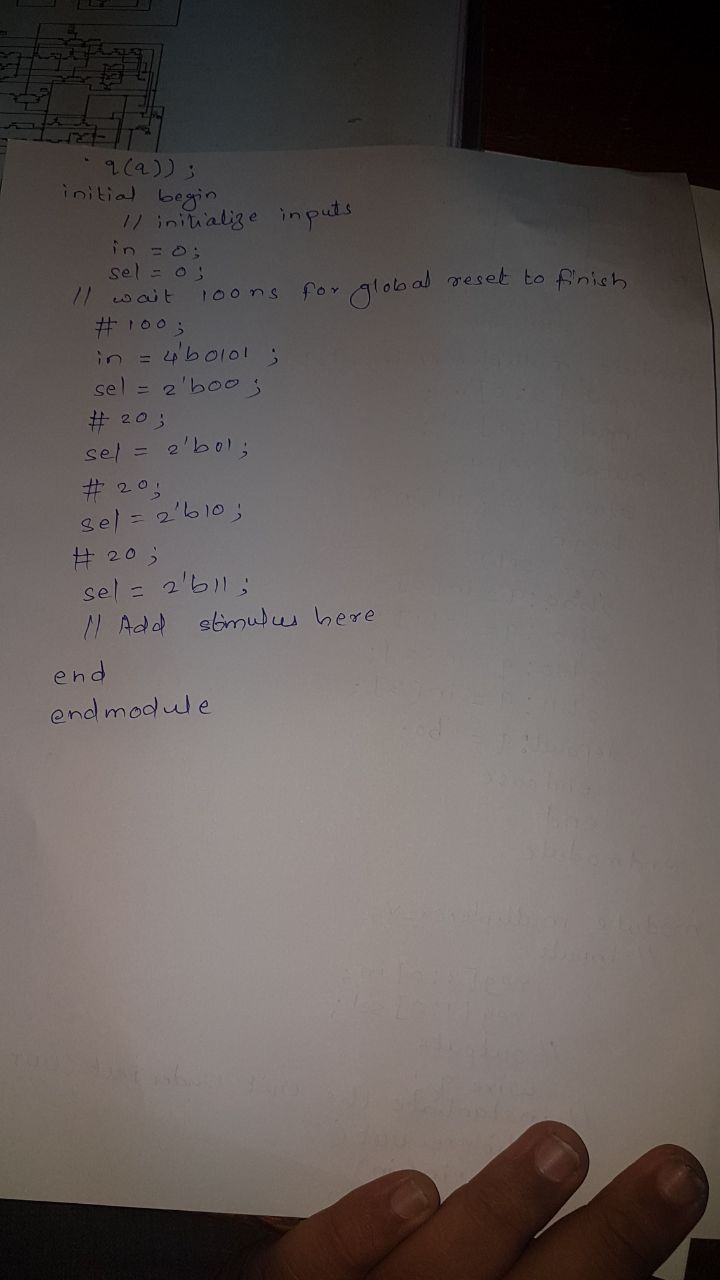 . q(q));
initial begin
// initialize inputs
in = 0;
sel = 0;
// wait 100ns for global reset to finish
# 100;
in = 4'b0101 ;
sel = 2'b00 ;
# 20 ;
sel = 2'b01 ;
# 20;
sel = 2'b10 ;
# 20 ;
sel = 2'b11 ;
// Add stimulus here
end
endmodule